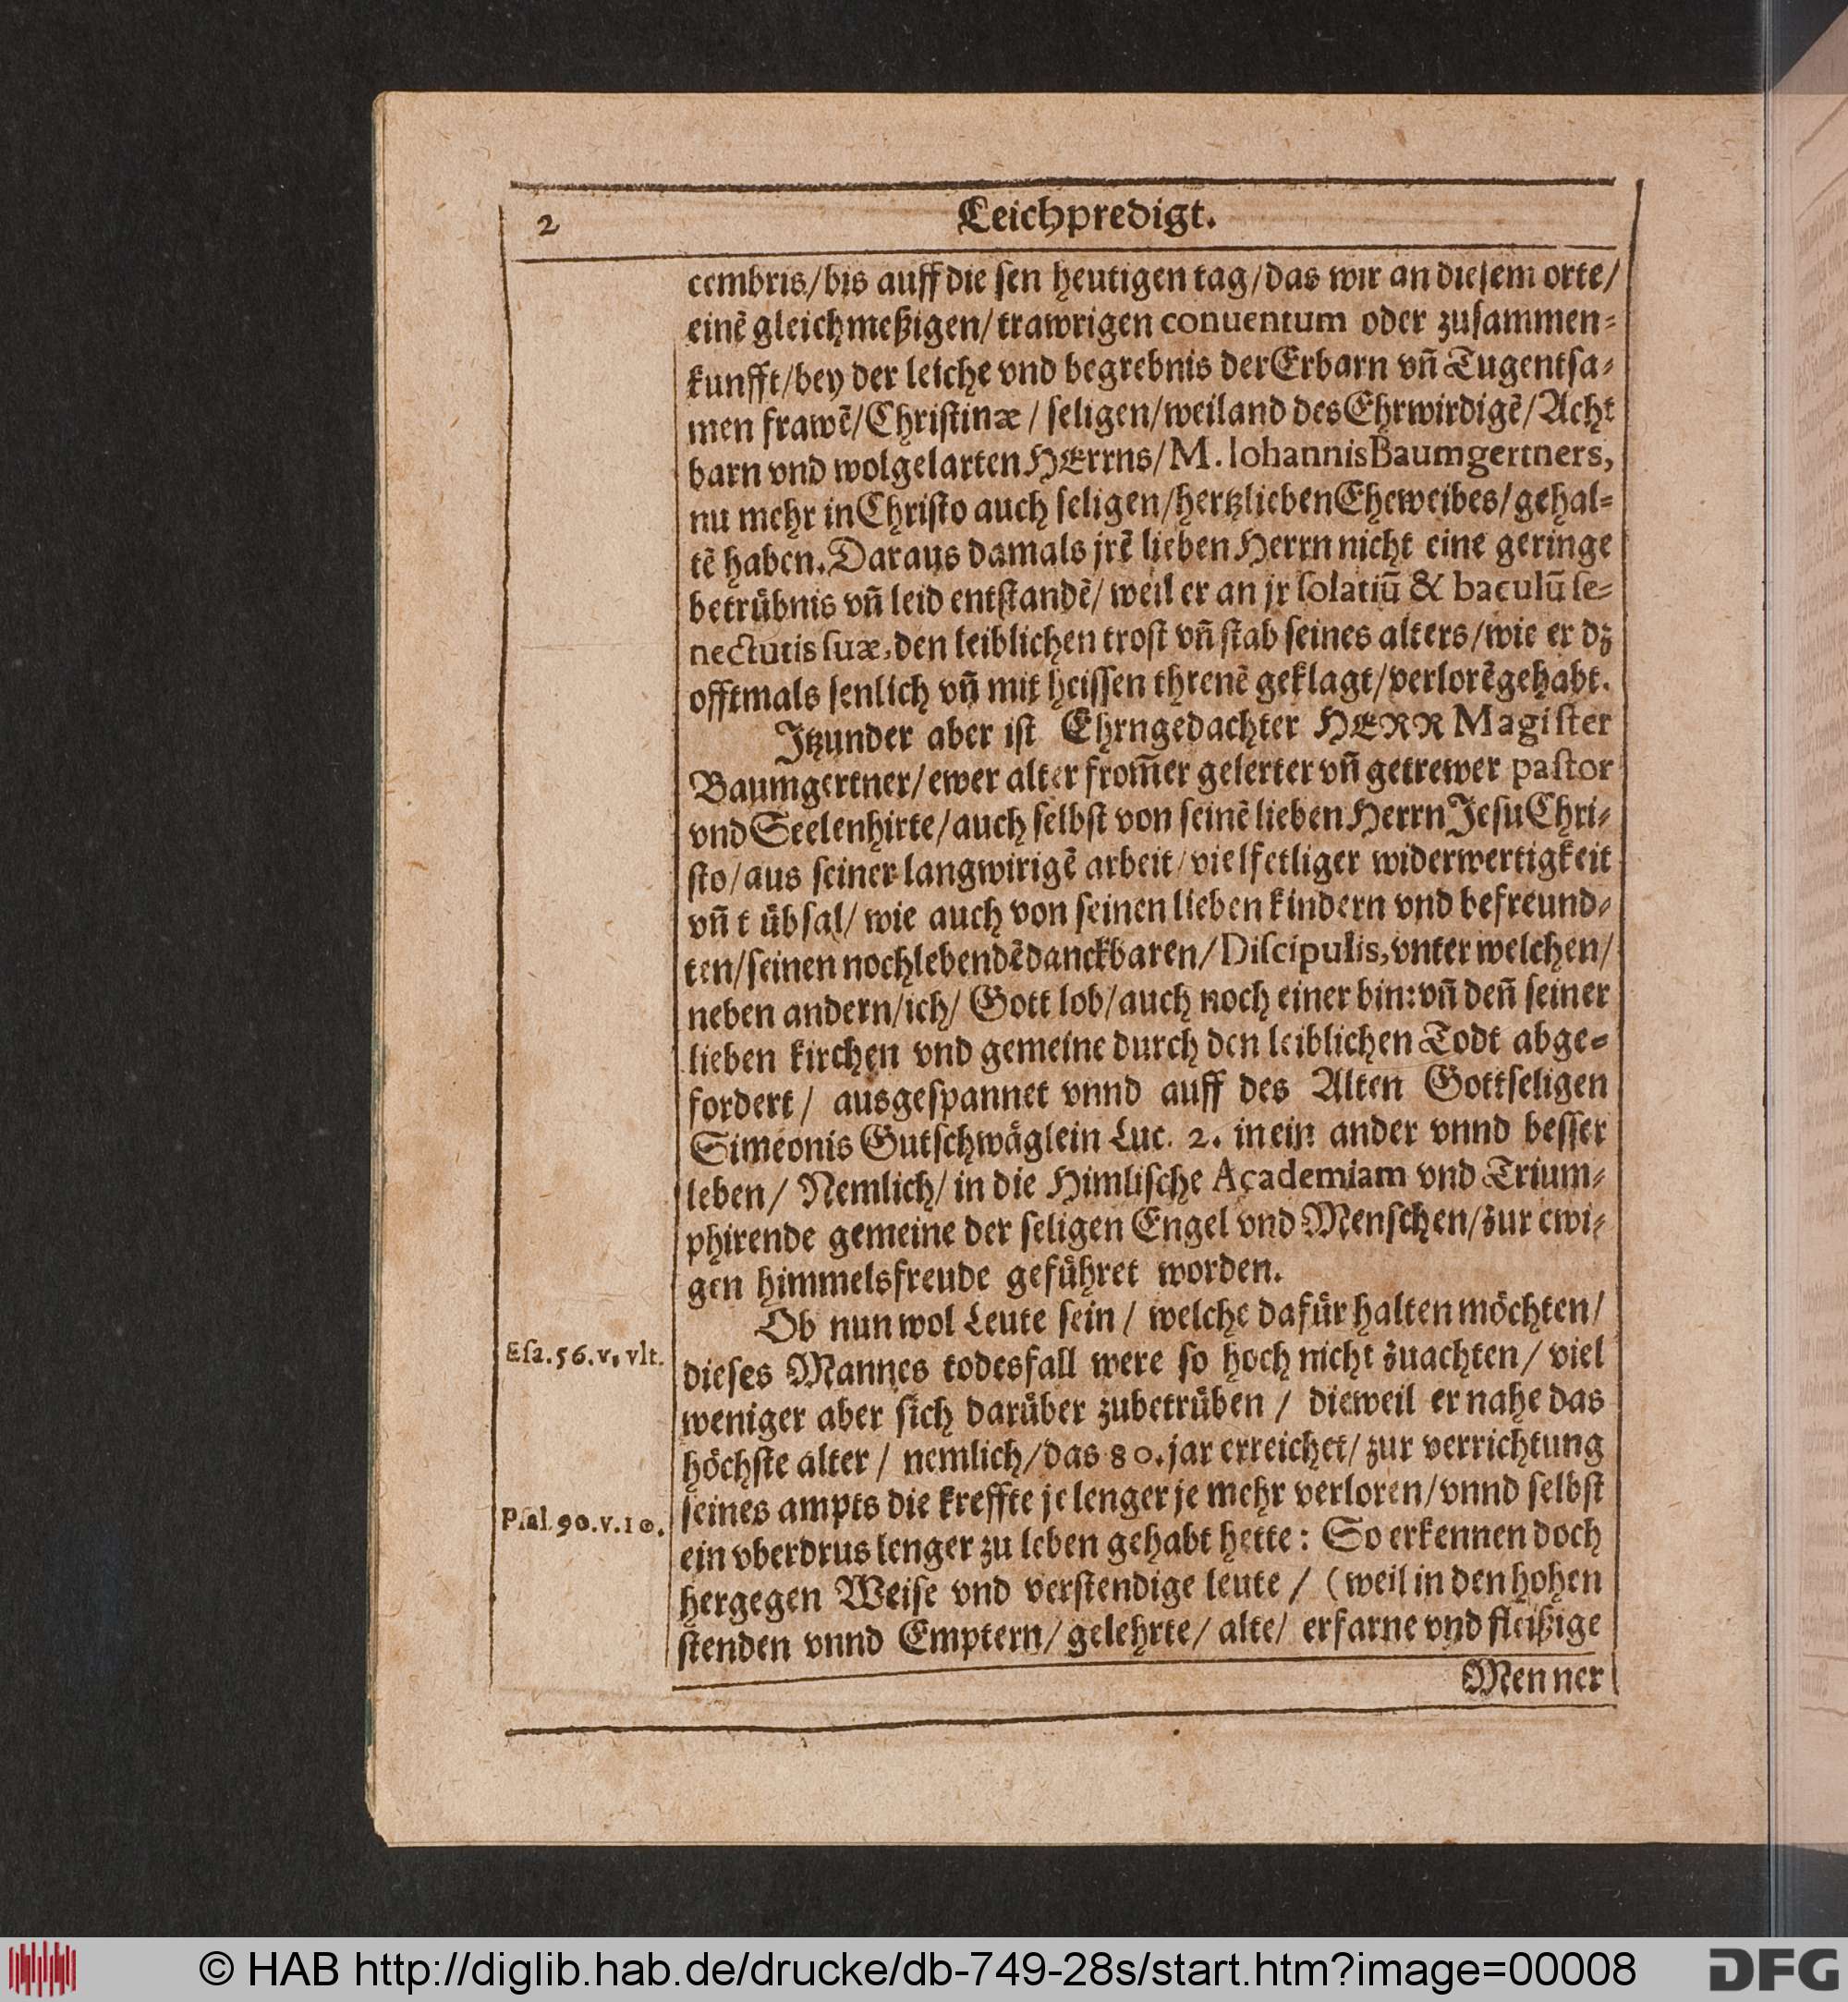 2
Leichpredigt.
cembris/bis auff die sen heutigen tag/das wir an diesem orte/
einẽ gleichmeßigen/trawrigen conuentum oder zusammen-
kunfft/bey der leiche vnd begrebnis der Erbarn vñ Tugentsa-
men frawẽ/Christinæ/ seligen/weiland des Ehrwirdigẽ/Acht
barn vnd wolgelarten HErrns/M. Iohannis Baumgertners,
nu mehr in Christo auch seligen/hertzlieben Eheweibes/gehal-
tẽ haben. Daraus damals jrẽ lieben Herrn nicht eine geringe
betrübnis vñ leid entstandẽ/ weil er an jr solatiũ & baculũ se-
nectutis suæ, den leiblichen trost vñ stab seines alters/wie er dz
offtmals senlich vñ mit heissen threnẽ geklagt/verlorẽ gehabt.
Itzunder aber ist Ehrngedachter HERR Magister
Baumgertner/ewer alter from̃er gelerter vñ getrewer pastor
vnd Seelenhirte/auch selbst von seinẽ lieben Herrn Jesu Chri-
sto/aus seiner langwirigẽ arbeit/vielfetliger widerwertigkeit
vñ t übsal/ wie auch von seinen lieben kindern vnd befreund-
ten/seinen noch lebendẽ danckbaren/Discipulis, vnter welchen/
neben andern/ich/ Gott lob/auch noch einer bin: vñ deñ seiner
lieben kirchen vnd gemeine durch den leiblichen Todt abge-
fordert/ ausgespannet vnnd auff des Alten Gottseligen
Simeonis Gutschwäglein Luc. 2. in ein ander vnnd besser
leben/ Nemlich/ in die Himlische Academiam vnd Trium-
phirende gemeine der seligen Engel vnd Menschen/zur ewi-
gen himmelsfreude geführet worden.
Ob nun wol Leute sein/ welche dafür halten möchten/
Esa. 56. v. vlt.
dieses Mannes todesfall were so hoch nicht zuachten/ viel
weniger aber sich darüber zubetrüben/ dieweil er nahe das
höchste alter/ nemlich/das 80. jar erreichet/ zur verrichtung
Psal. 90. v. 10.
seines ampts die kreffte je lenger je mehr verloren/vnnd selbst
ein vberdrus lenger zu leben gehabt hette: So erkennen doch
hergegen Weise vnd verstendige leute/ (weil in den hohen
stenden vnnd Emptern/ gelehrte/ alte/ erfarne vnd fleißige
Men ner
© HAB http://diglib.hab.de/drucke/db-749-28s/start.htm?image=00008
DFG